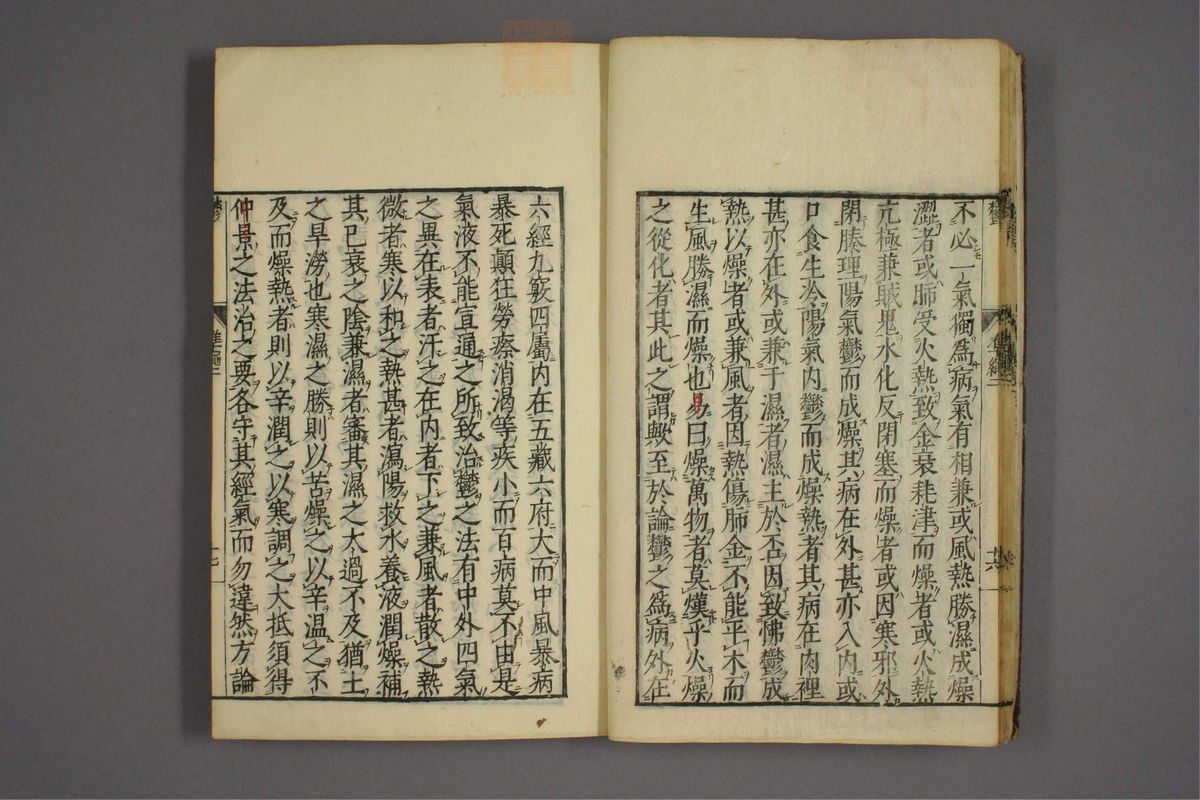 不必一氣獨爲病氣有相兼或風熱勝濕成燥
澀者或肺受火熱致金衰耗津而燥者或火熱
亢極兼賊鬼水化反閉塞而燥者或因寒邪外
閉腠理陽氣鬱而成燥其病在外甚亦入内或
口食生冷陽氣内鬱而成燥熱者其病在肉裡
甚亦在外或兼于濕者濕主於否因致怫鬱成
熱以燥者或兼風者因熱傷肺金不能平木而
生風勝濕而燥也易曰燥萬物者莫熯乎火燥
之從化者其此之謂歟至於論鬱之爲病外在
六經九竅四屬内在五藏六府大而中風暴病
暴死顛狂勞瘵消渴等疾小而百病莫不由是
氣液不能宣通之所致治鬱之法有中外四氣
之異在表者汗之在内者下之兼風者散之熱
微者寒以和之熱甚者瀉陽救水養液潤燥補
其已衰之陰兼濕者審其濕之太過不及猶土
之旱澇也寒濕之勝則以苦燥之以辛温之不
及而燥熱者則以辛潤之以寒調之大抵須得
仲景之法治之要各守其經氣而勿違然方論